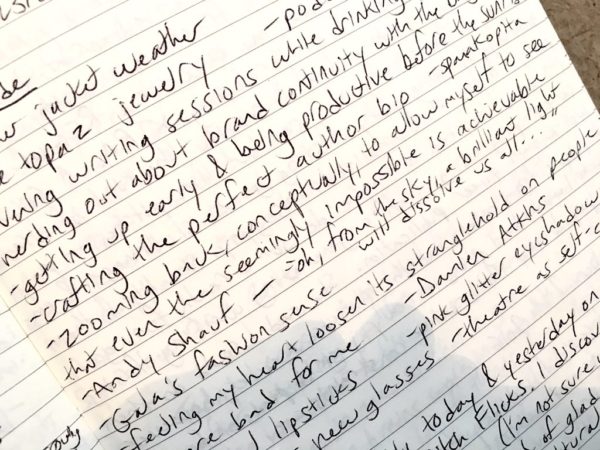 jacket weather
topaz jewelry
writing sessions while drinking
nerding out about brand continuity with the
-getting up early & being productive before the sunrise
-crafting the perfect author bio -spanakopita
-zooming back, conceptually, to allow myself to see
that even the seemingly impossible is achievable
-Andy Shauf — "oh, from the sky, a brilliant light
will dissolve us all..."
-Gala's fashion sense
-feeling my heart loosen its stranglehold on people
bad for me -Damien Atkins
lipsticks -pink glitter eyeshadow
new glasses -theatre as self-
today & yesterday on
Flicks. I
(I'm not sure
of